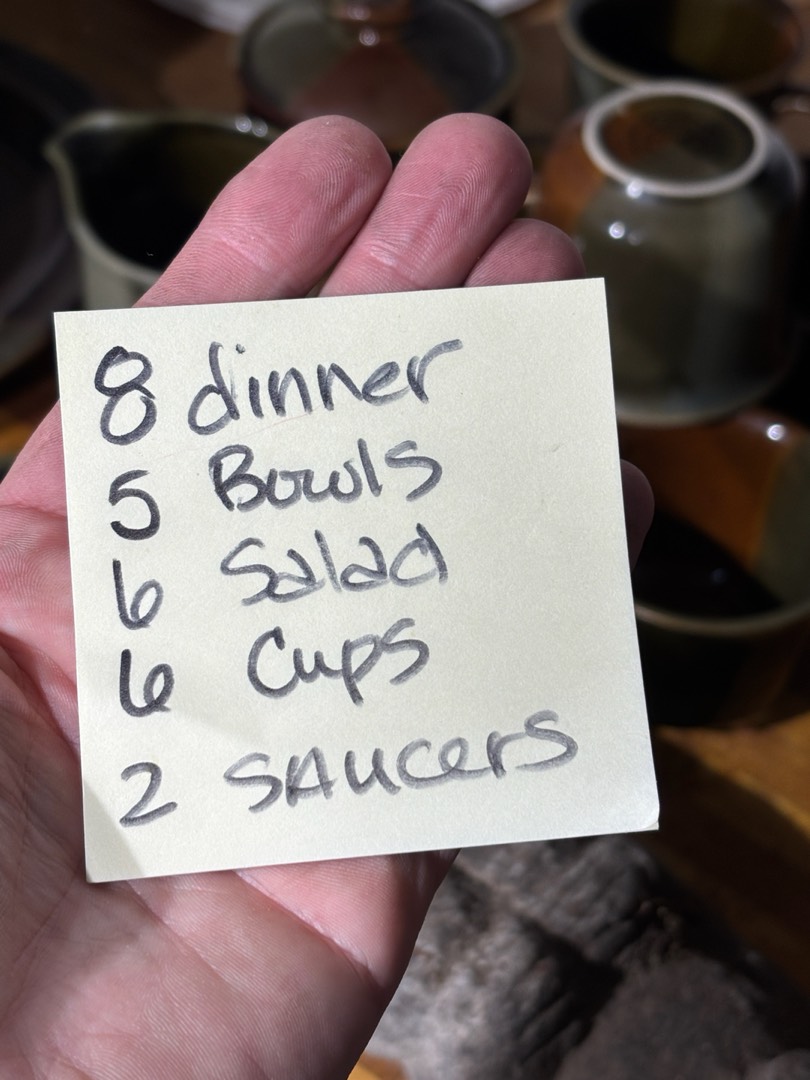 8 dinner
5 Bowls
6 Salad
6 Cups
2 SAucers